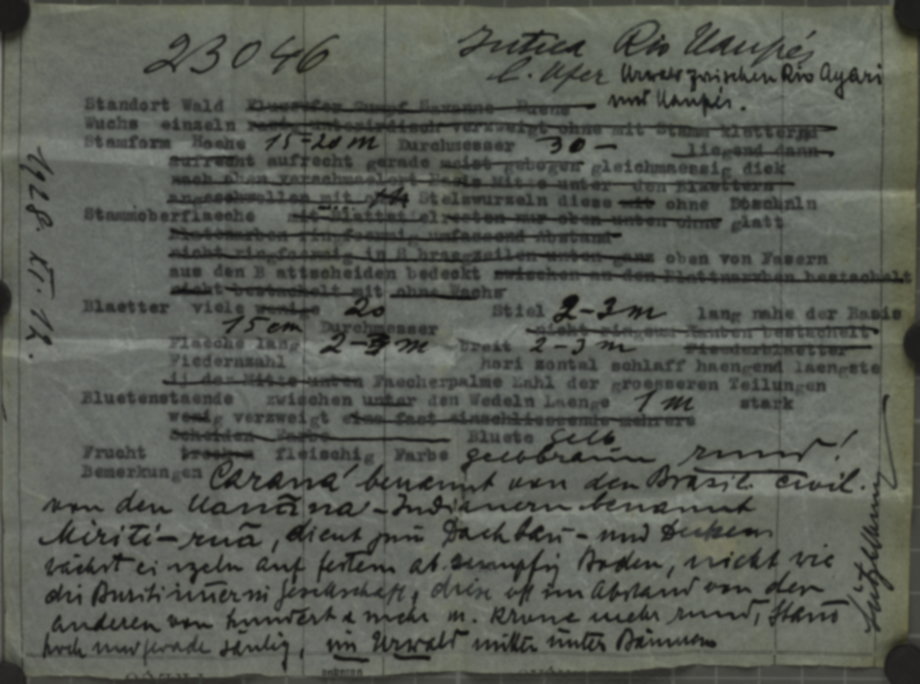 23046
Jutica Rio Uaupés
l. Ufer Urwald zwischen Rio Ayari
und Uaupés.
Standort Wald Flussufer Sumpf Savanne
Wuchs einzeln unterirdisch verzweigt ohne mit Stamm kletternd
Stamform Hoehe 15-20 m Durchmesser 30- liegend dann
aufrecht aufrecht gerade meist gebogen gleichmaessig dick
nach oben verschmaelert Basis Mitte unter den Blaettern
angeschwollen mit Stelzwurzeln diese mit ohne Boscheln
Stammoberflaeche mit Blattstielresten nur oben unten ohne glatt
Blattnarben ringfoermig umfassend Abstand
nicht ringfoermig in S hraegzeilen unten ganz oben von Fasern
aus den B attscheiden bedeckt zwischen an den Blattnarben bestachelt
nicht bestachelt mit ohne Wachs
Blaetter viele wenige 20 Stiel 2-3 m lang nahe der Basis
15 cm Durchmesser bestachelt
Flaeche lang 2-3 m breit 2-3 m Fiederblaetter
Fiedernzahl hori zontal schlaff haengend laengste
ij der Mitte unten Faecherpalme Zahl der groesseren Teilungen
Bluetenstaende zwischen unter den Wedeln Laenge 1 m stark
wenig verzweigt eine fast einschliessende mehrere
Scheiden Farbe Bluete Gelb
Frucht trocken fleischig Farbe gelbbraun rund!
Bemerkungen Caraná benannt von den Brasil. civil.
von den Uanāna-Indianern benannt
Miriti-ruā, dient zum Dachbau- und Decken
wächst einzeln auf festem ab. sumpfig Boden, nicht wie
die Buriti immer in Gesellschaft, diese oft im Abstand von den
anderen von hundert & mehr m. Krone mehr rund, Stamm
hoch und gerade säulig, im Urwald mitten unter Bäumen
1928. XI. 12.
Luetzelburg